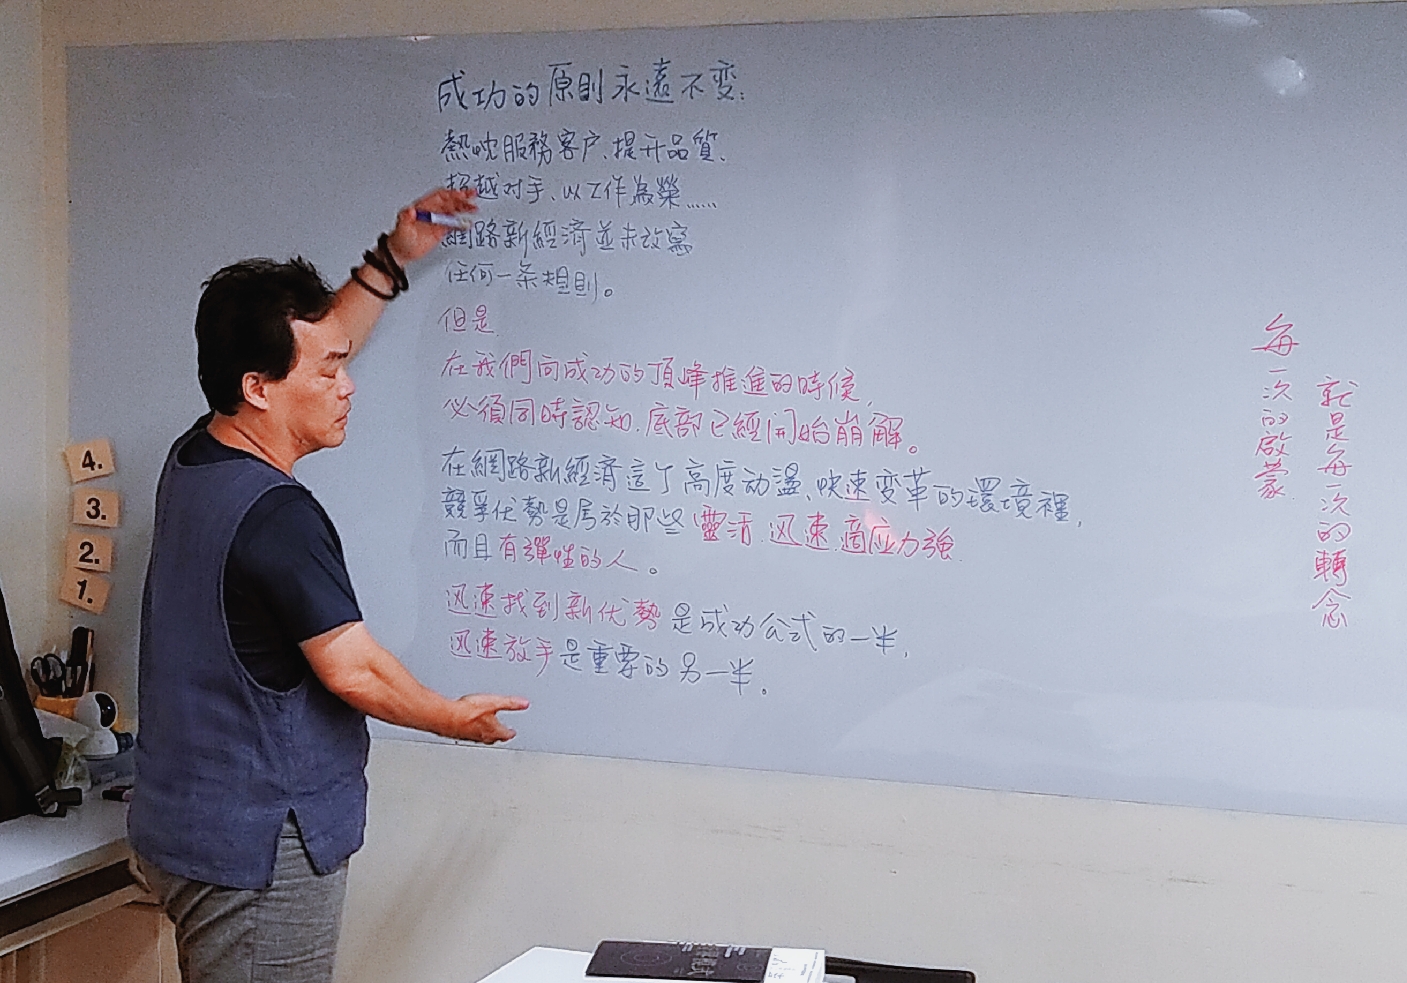 成功的原則永遠不变：
熱忱服務客户、提升品質、
超越对手、以工作為榮......
網路新經濟並未改寫
任何一条規則。
但是
在我們向成功的頂峰推進的時候，
必須同時認知、底部已經開始崩解。
在網路新經濟這个高度动盪、快速变革的環境裡，
競爭优勢是居於那些靈活、迅速、適应力強
而且有彈性的人。
迅速找到新优勢是成功公式的一半，
迅速放手是重要的另一半。
每一次的啟蒙
就是每一次的轉念
4.
3.
2.
1.